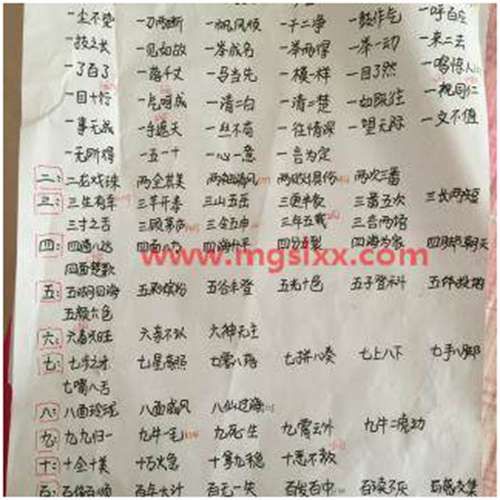 一尘不染 一刀两断 一帆风顺 一干二净 一鼓作气 一呼百应
一技之长 一见如故 一举成名 一举两得 一举一动 一来二去
一了百了 一落千丈 一马当先 一模一样 一目了然 一鸣惊人
一目十行 一气呵成 一清二白 一清二楚 一如既往 一视同仁
一事无成 一手遮天 一丝不苟 一往情深 一望无际 一文不值
一无所得 一五一十 一心一意 一言为定
二: 二龙戏珠 两全其美 两袖清风 两败俱伤
三: 三生有幸 三年五载 三番五次 三长两短
三寸之舌 三顾茅庐 三令五申 三年五载
四: 四通八达 四面八方 四海升平 四分五裂 四海为家 四脚朝天
www.mgsixx.com
四面楚歌
五: 五湖四海 五彩缤纷 五谷丰登 五光十色 五子登科 五体投地
五颜六色
六: 六畜兴旺 六亲不认 六神无主
七: 七步之才 七星高照 七零八落 七拼八凑 七上八下 七手八脚
七嘴八舌
八: 八面玲珑 八面威风 八仙过海
九: 九九归一 九牛一毛 九死一生 九霄云外 九牛二虎功
十: 十全十美 十万火急 十拿九稳 十恶不赦
百: 百依百顺 百年大计 百发百中 百读不厌 百废俱兴